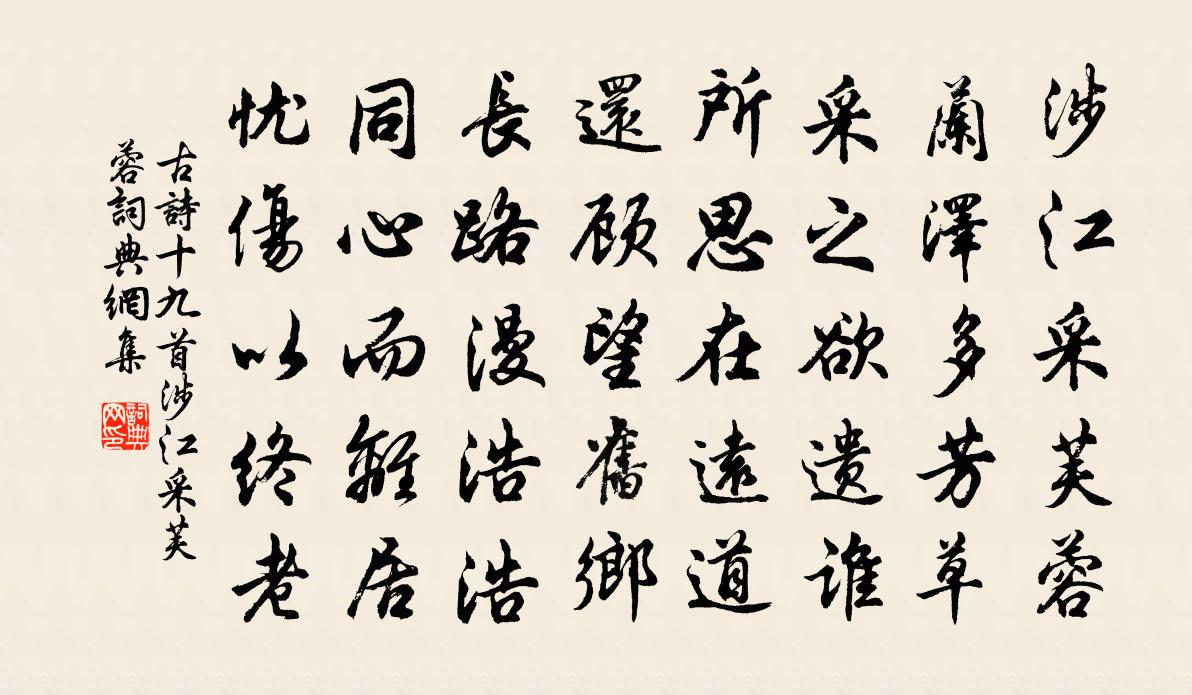 涉江采芙蓉
蘭澤多芳草
采之欲遗誰
所思在遠道
還顾望舊鄉
長路漫浩浩
同心而離居
忧傷以终老
古詩十九首涉江采芙
蓉詞典網集
詞典
网印